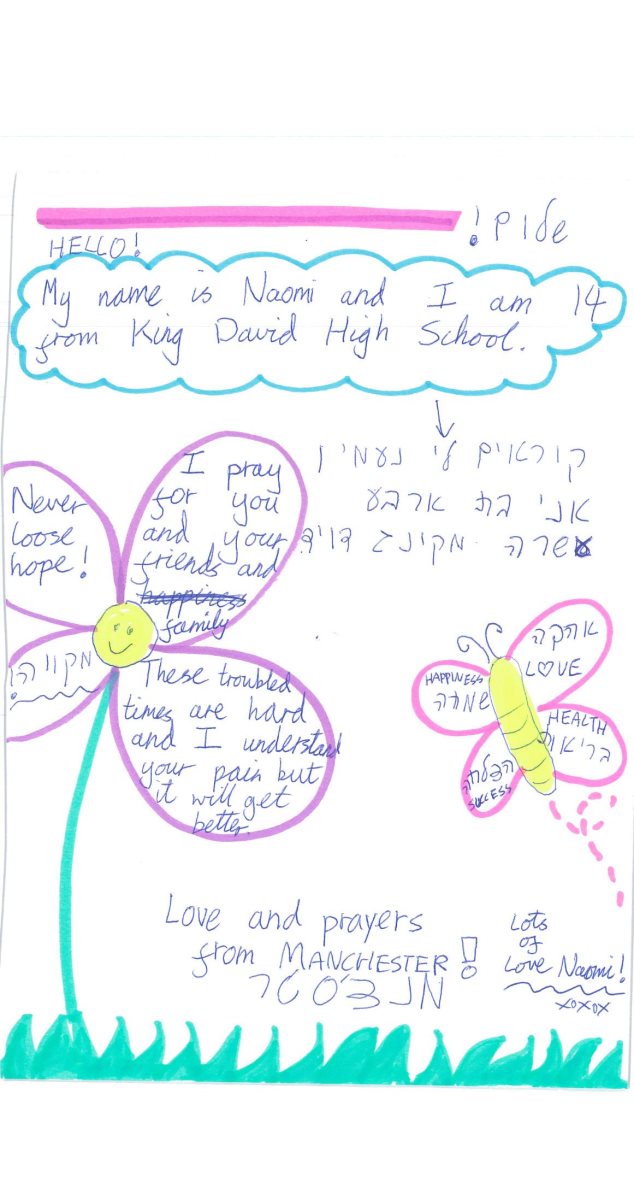 שלום!
HELLO!
My name is Naomi and I am 14
from King David High School.
קוראים לי נעמי ו
אני בת ארבע
שרה מקינג דויד
Never
loose
hope!
I pray
for you
and your
friends and
happiness
family
מקווה!
These troubled
times are hard
and I understand
your pain but
it will get
better.
אהקה
LOVE
HAPPINESS
שמחה
HEALTH
בריאות
הצלחה
SUCCESS
Love and prayers
from MANCHESTER!
מנצ'סטר
Lots
of
Love Naomi!
xoxox